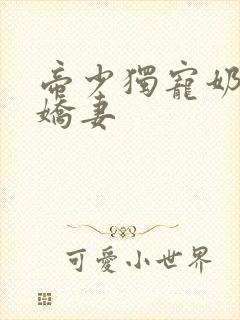 帝少獨寵奶
嬌妻
可愛小世界